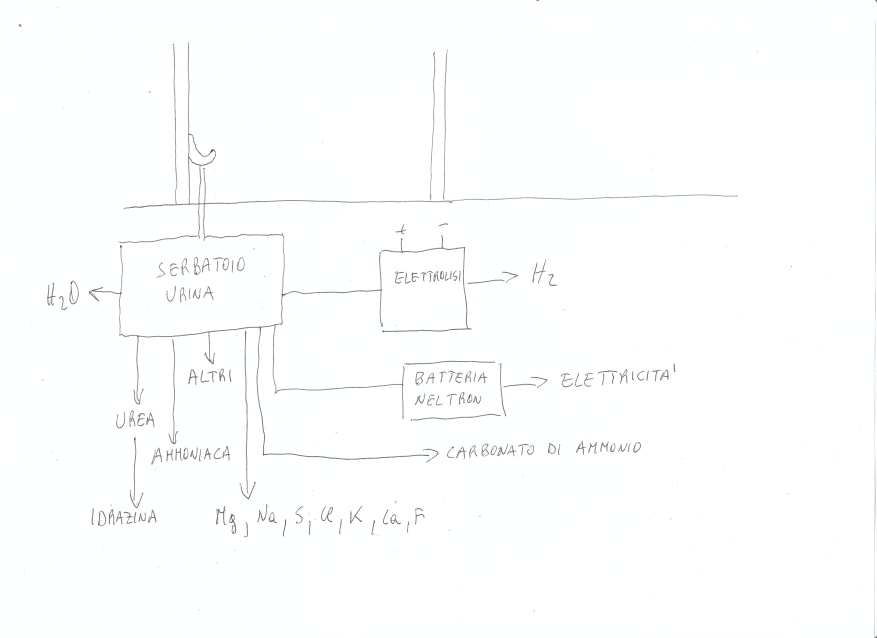 + -
SERBATOIO
URINA
ELETTROLISI
H2
H2O
ALTRI
BATTERIA
NELTRON
ELETTRICITA'
UREA
AMMONIACA
CARBONATO DI AMMONIO
IDRAZINA
Mg, Na, S, Cl, K, Ca, F